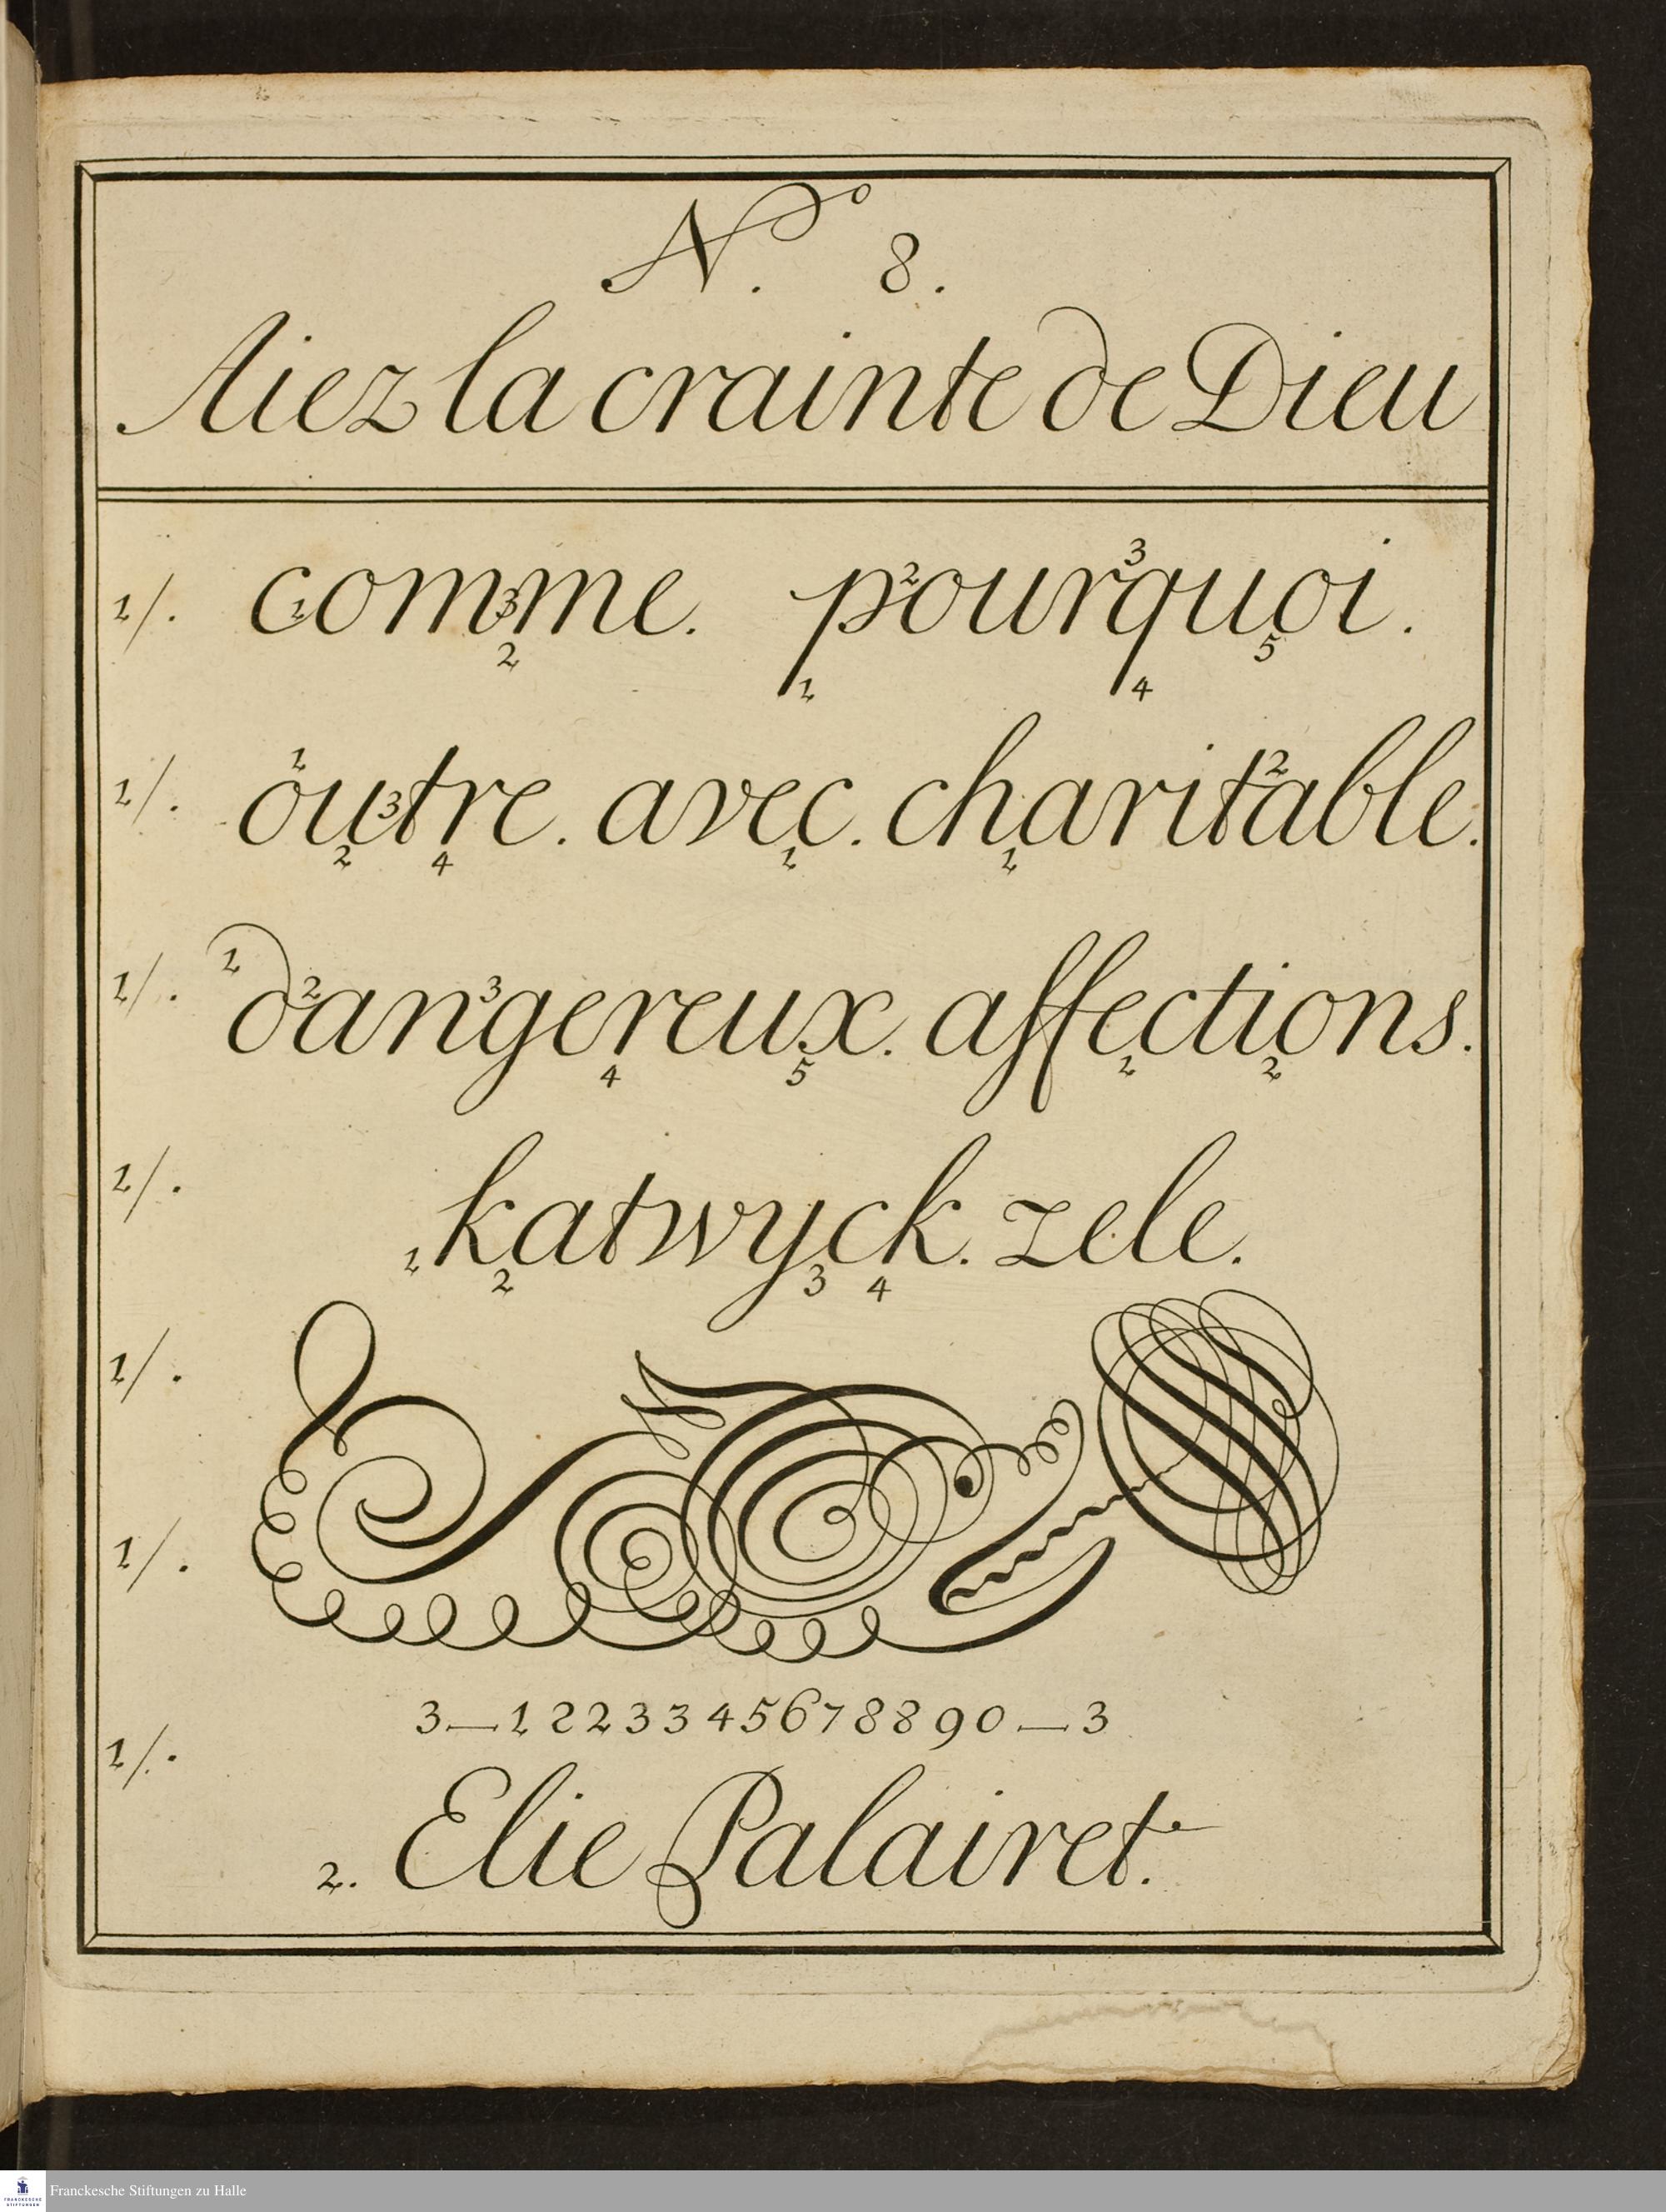 N.o 8.
Aiez la crainte de Dieu
1/. comme. pourquoi.
1/. outre. avec. charitable.
1/. dangereux. affections.
1/. katwyck. zele.
1/.
1/.
3—1 2 2 2 3 3 4 5 6 7 8 8 9 0—3
1/.
2. Elie Palairet.
FRANCKESCHE STIFTUNGEN
Franckesche Stiftungen zu Halle